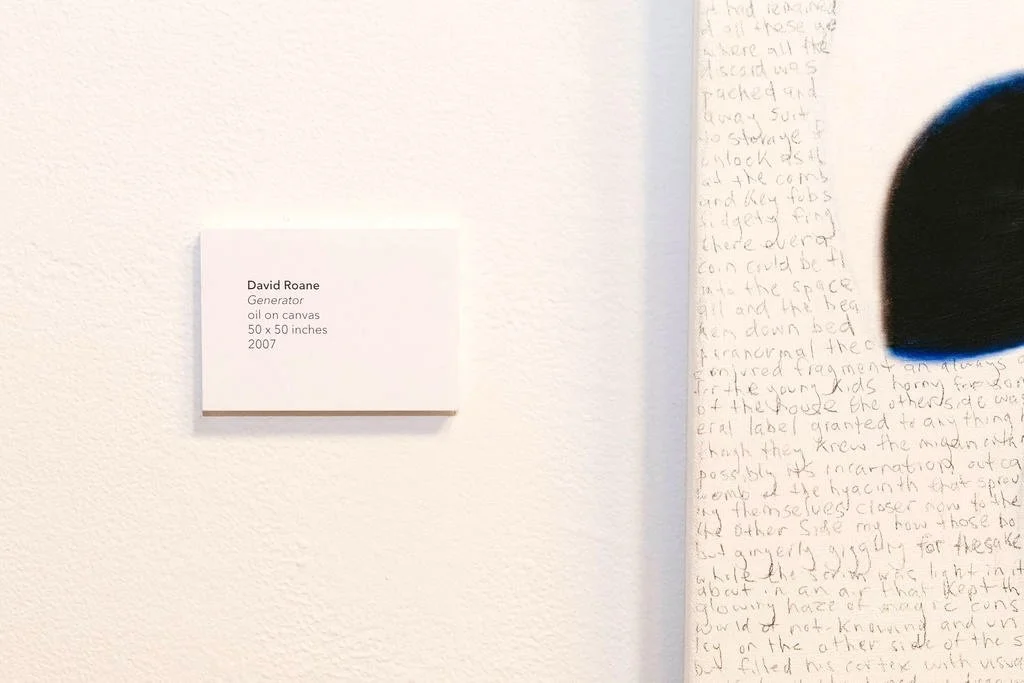 David Roane
Generator
oil on canvas
50 x 50 inches
2007
it had remained
d all these
where all the
discard was
and
away suit
to storage
unlock as th
at the comb
and key fobs
fidgety fing
there overa
coin could be th
into the space
and the hea
down bed
paranormal the
conjured fragment an always
for the young kids horny
of the house the other side was
eral label granted to anything
though they knew the
possibly its incarnation out ca
womb of the hyacinth that sprou
ing themselves closer now to the
the other side my how those bo
but gingerly for the sake
while the scrim was light in it
about in an air that kept th
glowing haze of magic cons
world of not-knowing and un
icy on the other side of the s
but filled his cortex with visua